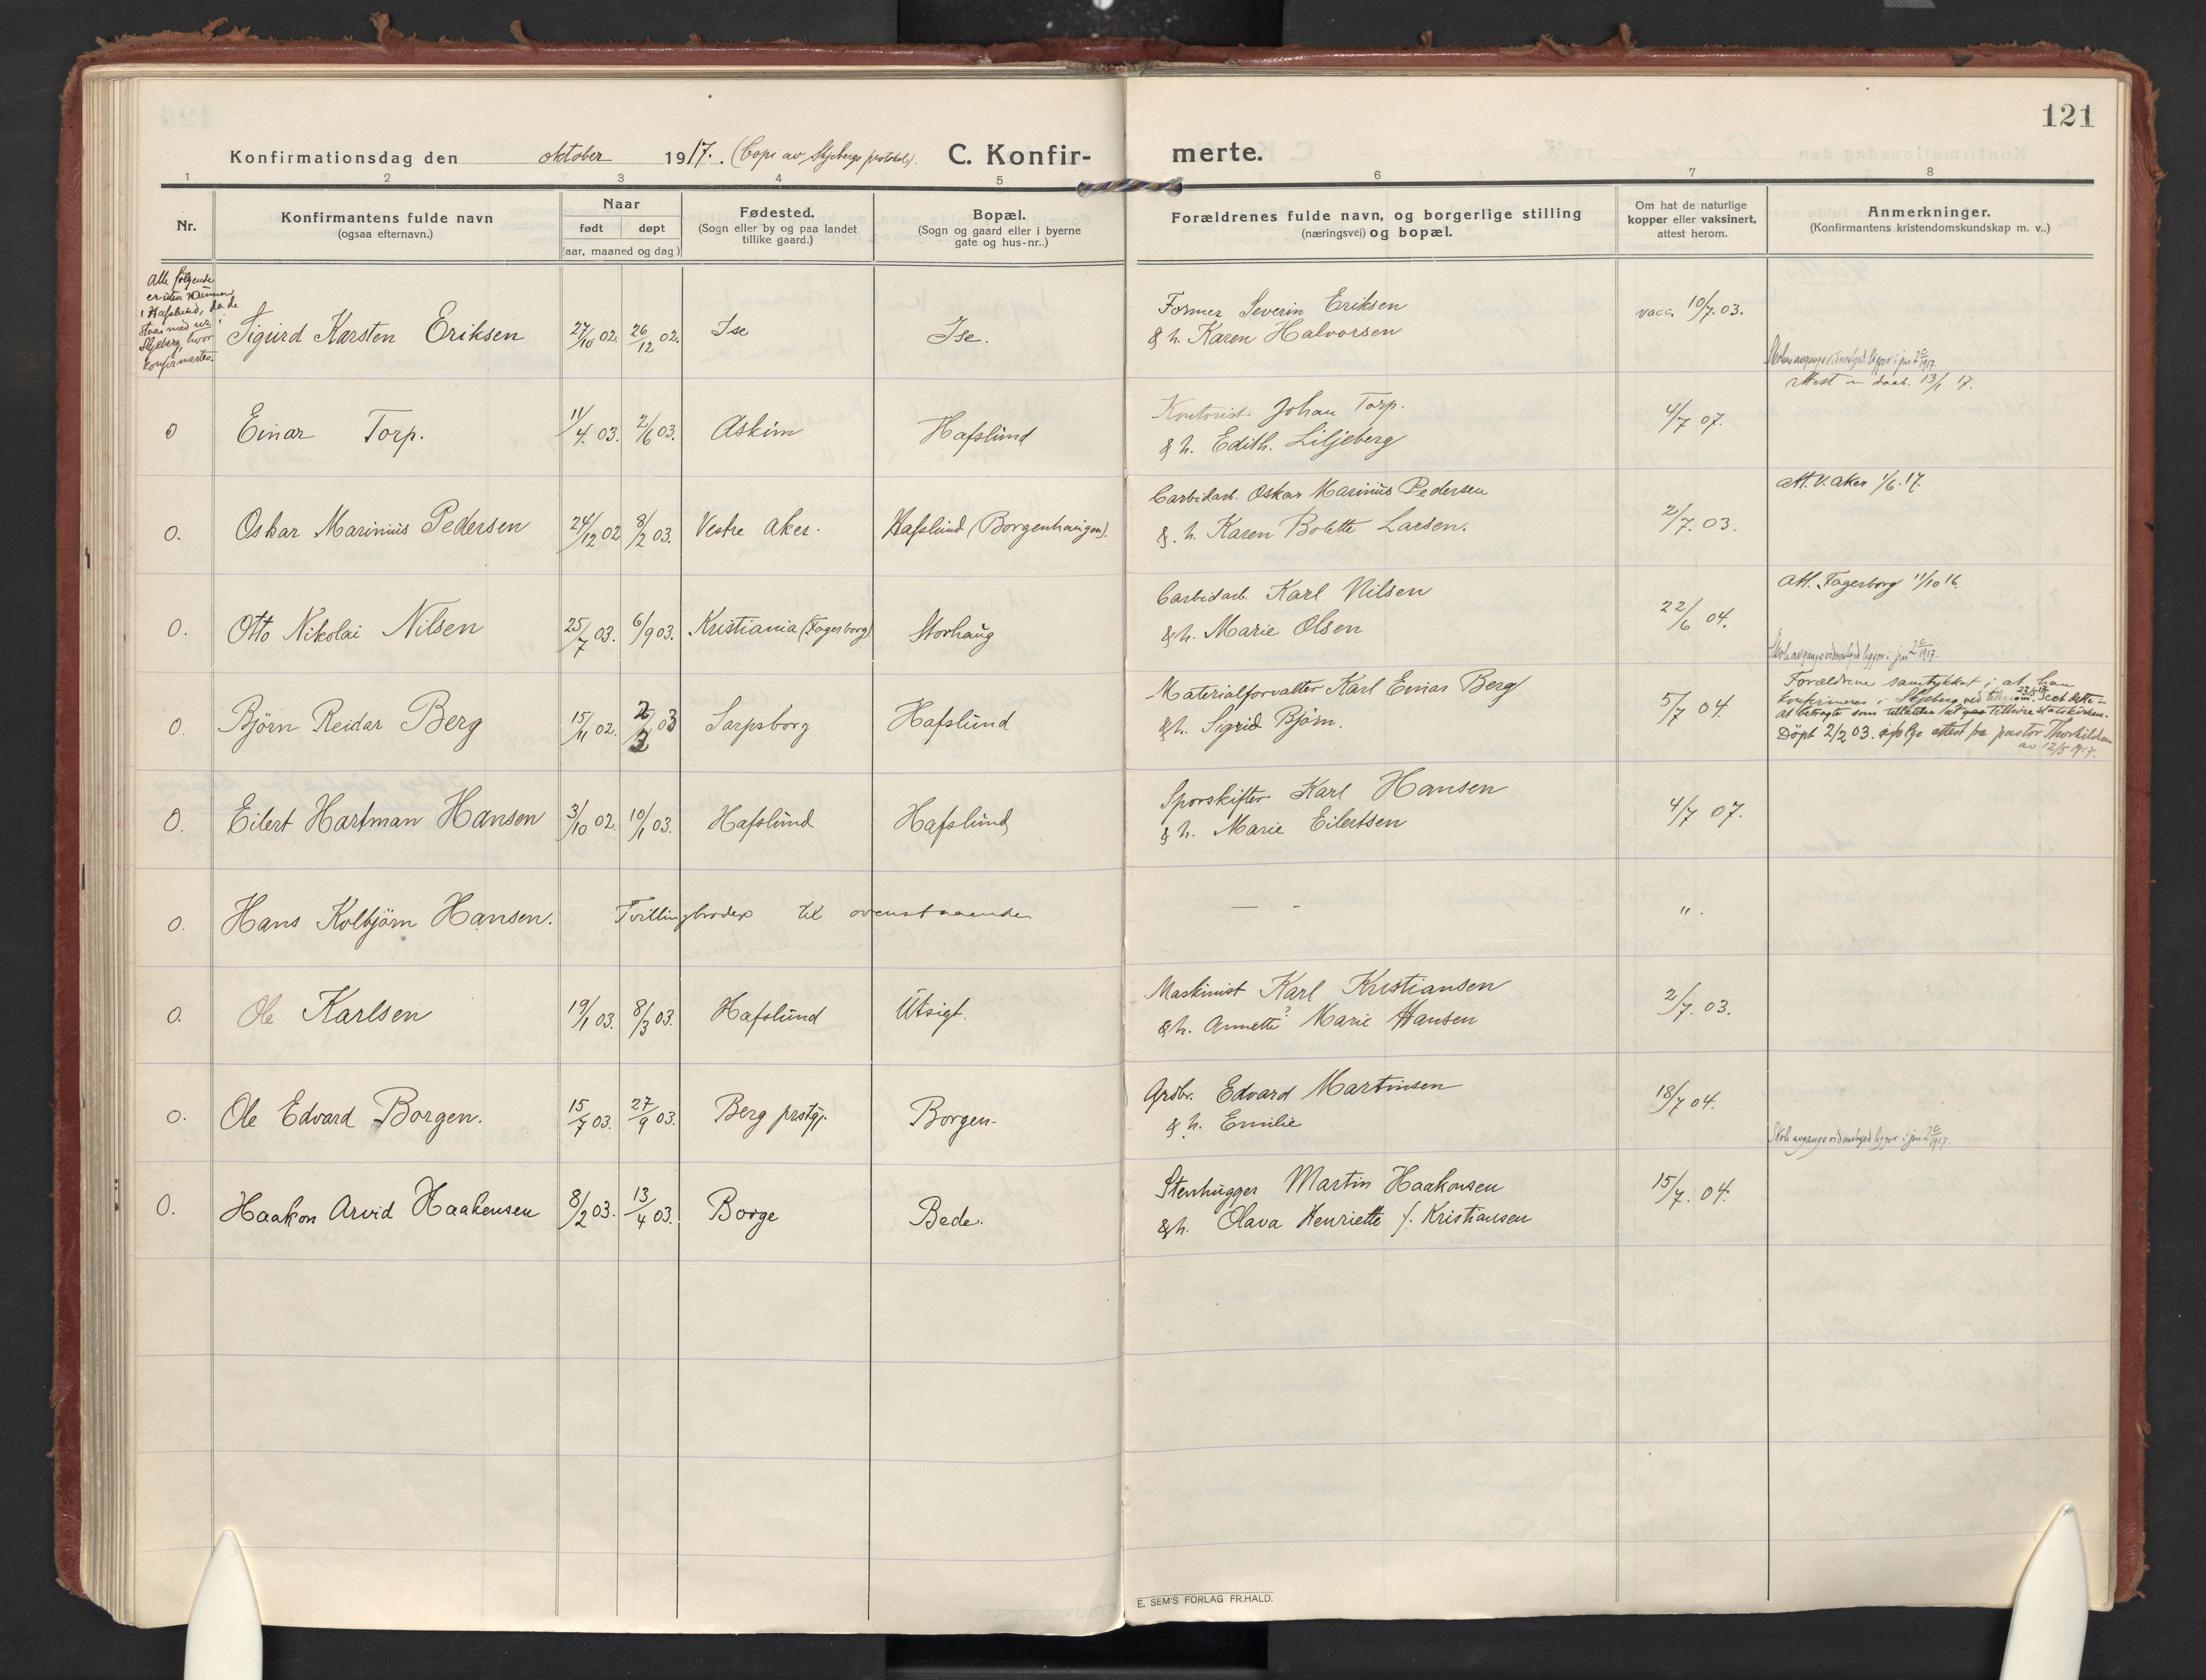 121
Konfirmationsdag den oktober 1917. (Copi av Skjebergs protokol). C. Konfirmerte.
1 2 3 4 5 6 7 8
Nr.
Konfirmantens fulde navn
(ogsaa efternavn.)
Naar
født døpt
(aar, maaned og dag)
Fødested.
(Sogn eller by og paa landet
tillike gaard.)
Bopæl.
(Sogn og gaard eller i byerne
gate og hus-nr..)
Forældrenes fulde navn, og borgerlige stilling
(næringsvei) og bopæl.
Om hat de naturlige
kopper eller vaksinert,
attest herom.
Anmerkninger.
(Konfirmantens kristendomskundskap m. v..)
Alle følgende
er uten nummer
i Hafslund, da de
staar med nr i
Skjeberg, hvor
konfirmertes.
Sigurd Karsten Eriksen 27/10 02. 26/12 02. Ise Ise.
Former Severin Eriksen
& h. Karen Halvorsen
vacc. 10/7. 03.
Skoleavgangsvidnesbyrd ligger i jnr 2c/1917.
Attest om daab. 13/1 17.
0 Einar Torp. 11/4. 03. 2/6 03. Askim Hafslund
Kontorist Johan Torp.
& h. Edith. Liljeberg
4/7 07.
0. Oskar Marinius Pedersen 24/12 02 8/2 03. Vestre Aker. Hafslund (Borgenhaugen).
Carbidarb. Oskar Marinius Pedersen
& h. Karen Bolette Larsen.
2/7. 03.
Att. V. Aker 1/6. 17.
0. Otto Nikolai Nilsen 25/7 03. 6/9 03. Kristiania (Fagerborg) Storhaug
Carbidarb. Karl Nilsen
& h. Marie Olsen
22/6 04.
Att. Fagerborg 11/10 16.
Skoleavgangsvidnesbyrd ligger i jnr 2c/1917.
0. Bjørn Reidar Berg 15/11 02. 2/2 03 Sarpsborg Hafslund
Materialforvalter Karl Einar Berg
& h. Sigrid Bjørn.
5/7 04.
Forældrene samtykket i at han
konfirmeres i Skjeberg
at betragte som tilhøre statskirken.
Döpt 2/2 03. ifølge attest fra pastor Thorkildsen
av 12/5 1917.
0. Eilert Hartman Hansen 3/10 02. 10/1 03. Hafslund Hafslund
Sporskifter Karl Hansen
& h. Marie Eilertsen
4/7 07.
0. Hans Kolbjörn Hansen. Tvillingbroder til ovenstaaende. — - " .
0. Ole Karlsen 19/1 03. 8/3 03. Hafslund Utsigt.
Maskinist Karl Kristiansen
& h. Annette? Marie Hansen
2/7. 03.
0. Ole Edvard Borgen. 15/7 03. 27/9 03. Berg prstgj. Borgen-
Grdbr. Edvard Martinsen
& h. Emilie
18/7 04.
Skoleavgangsvidnesbyrd ligger i jnr 2c/1917.
0. Haakon Arvid Haakensen 8/2 03. 13/4 03. Borge Bede.
Stenhugger Martin Haakonsen
& h. Olava Henriette f. Kristiansen
15/7. 04.
E. SEM'S FORLAG FR.HALD.